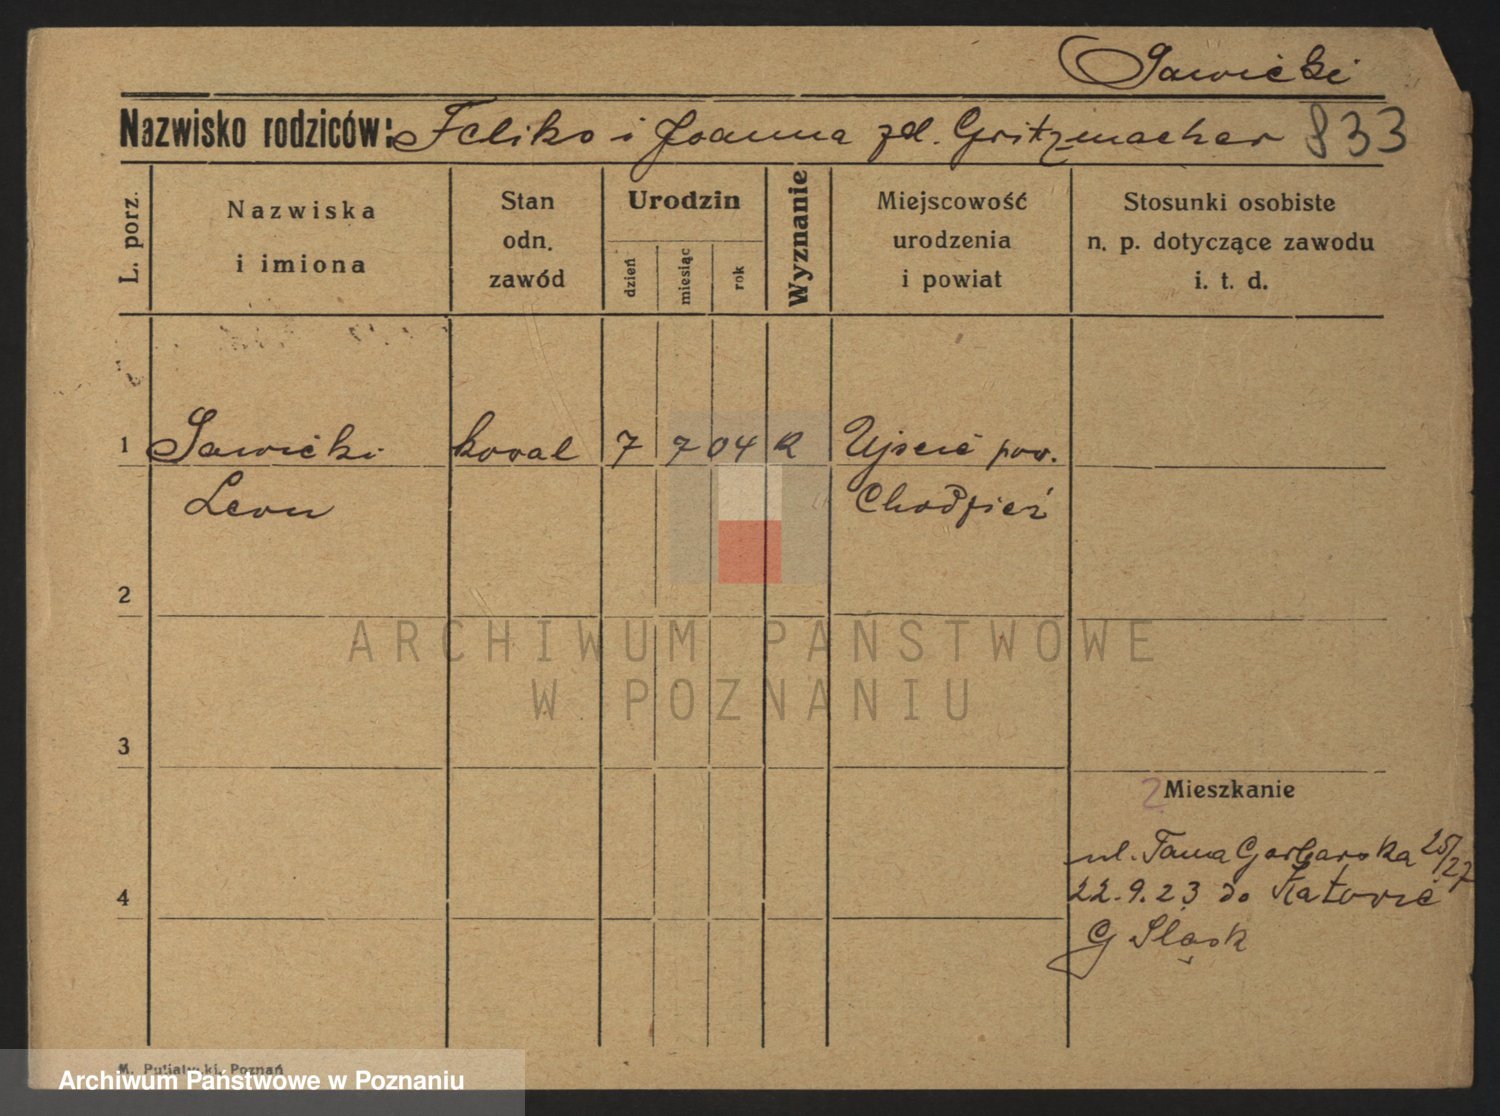 Sawicki
Nazwisko rodziców: Feliks i Joanna zd. Gritzmacher 833
L. porz.
Nazwiska
i imiona
Stan
odn.
zawód
Urodzin
dzień
miesiąc
rok
Wyznanie
Miejscowość
urodzenia
i powiat
Stosunki osobiste
n. p. dotyczące zawodu
i. t. d.
1 Sawicki kowal 7 7 04 R Ujście pow.
Leon Chodzież
2
ARCHIWUM PAŃSTWOWE
W POZNANIU
3
2 Mieszkanie
ul. Tama Garbarska 25/27
4
22.9.23 do Katowic
G Śląsk
M. Putiatycki, Poznań
Archiwum Państwowe w Poznaniu